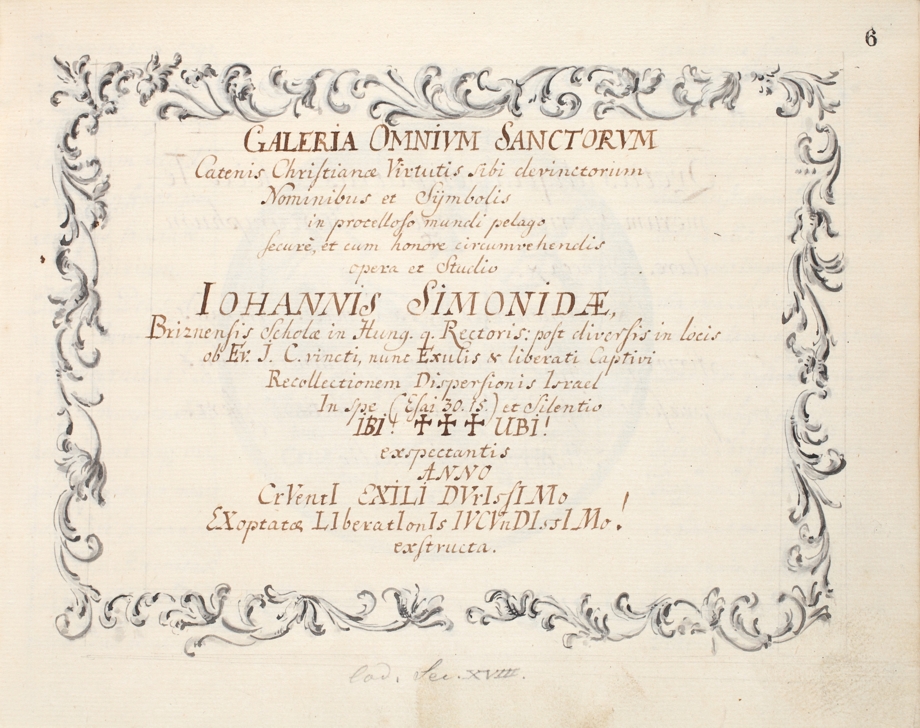 6
GALERIA OMNIVM SANCTORVM
Catenis Chriſtianæ Virtutis sibi devinctorum
Nominibus et Symbolis
in procelloſo mundi pelago
ſecurè, et cum honore circumvehendis
opera et Studio
IOHANNIS SIMONIDÆ,
Briznenſis Scholæ in Hung. q. Rectoris: poſt diverſis in locis
ob Ev. J. C. vincti, nunc Exulis & liberati Captivi
Recollectionem Dispersionis Israel
In spe (Eſai 30. 15.) et Silentio
IBI! ✝✝✝ UBI!
exspectantis
ANNO
CrVentI EXILI DVrIsſIMo
EXoptatæ LIberatIonIs IVCVnDIssIMo!
exſtructa.
Cod. Sec. XVIII.